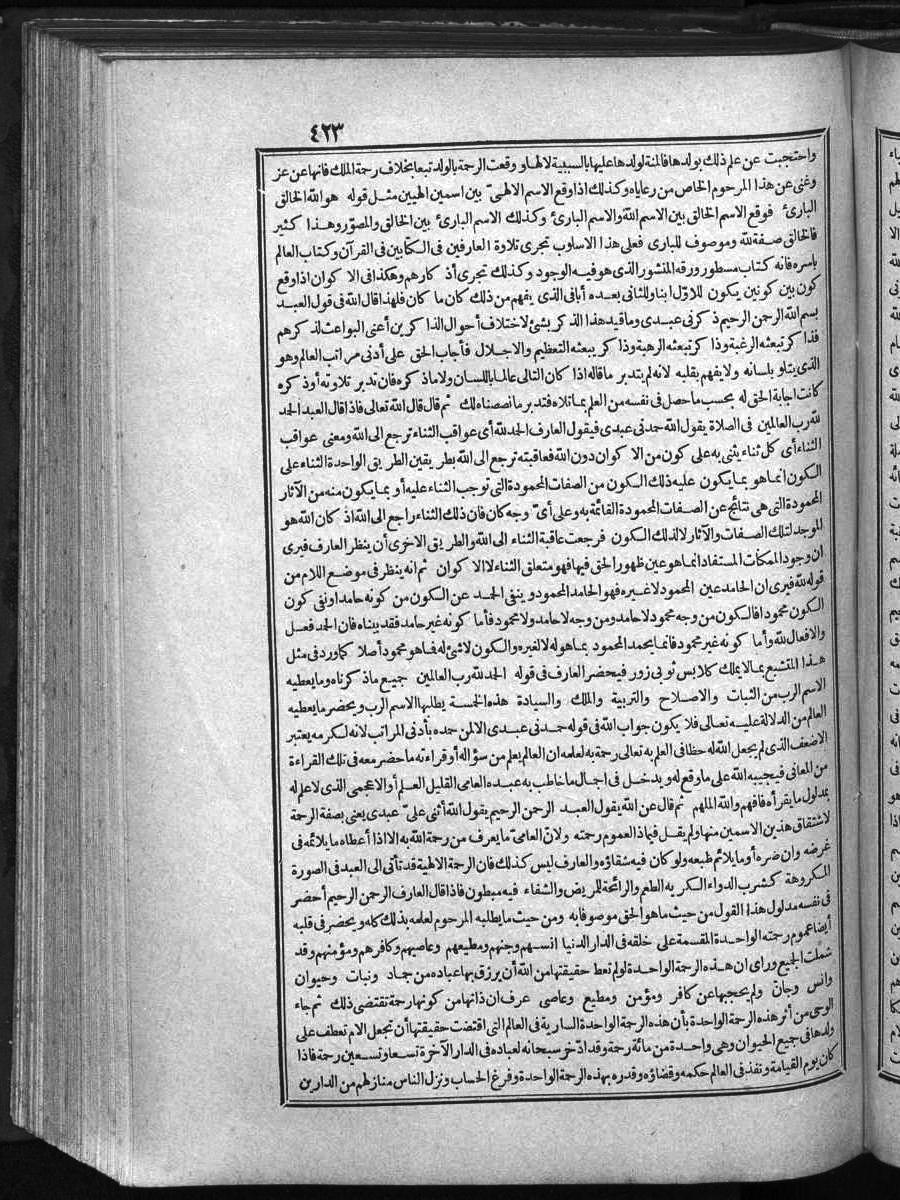 ٤٢٣
واحتجبت عن علم ذلك بولدها فالمنة لولدها عليها بالسببية لا لها و وقعت الرحمة بالولد تبعا بخلاف رحمة الملك فانها عن عز
وغنى عن هذا المرحوم الخاص من رعاياه وكذلك اذا وقع الاسم الالهىّ بين اسمين الهيين مثل قوله هو الله الخالق
البارئ فوقع الاسم الخالق بين الاسم الله والاسم البارئ وكذلك الاسم البارئ بين الخالق والمصوّر وهذا كثير
فالخالق صفة لله وموصوف للبارى فعلى هذا الاسلوب تجرى تلاوة العارفين فى الكتابين فى القرآن وكتاب العالم
باسره فانه كتاب مسطور ورقه المنشور الذى هو فيه الوجود وكذلك تجرى أذ كارهم وهكذا فى الا كوان اذا وقع
كون بين كونين يكون للاوّل ابنا وللثانى بعده أبا فى الذى يفهم من ذلك كان ما كان فلهذا قال الله فى قول العبد
بسم الله الرحمن الرحيم ذ كرنى عبدى وما قيد هذا الذ كر بشئ لاختلاف أحوال الذا كرين أعنى البواعث لذ كرهم
فذا كر تبعثه الرغبة وذا كر تبعثه الرهبة وذا كر يبعثه التعظيم والاجلال فأجاب الحق على أدنى مراتب العالم وهو
الذى يتلو بلسانه ولا يفهم بقلبه لانه لم يتدبر ما قاله اذا كان التالى عالما باللسان ولا ماذ كره فان تدبر تلاوته أوذ كره
كانت اجابة الحق له بحسب ما حصل فى نفسه من العلم بما تلاه فتدبر ما نصصناه لك ثم قال قال الله تعالى فاذا قال العبد الحمد
لله رب العالمين فى الصلاة يقول الله حمدنى عبدى فيقول العارف الحمد لله أى عواقب الثناء ترجع الى الله ومعنى عواقب
الثناء أى كل ثناء يثنى به على كون من الا كوان دون الله فعاقبته ترجع الى الله بطريقين الطريق الواحدة الثناء على
الكون انما هو بما يكون عليه ذلك الكون من الصفات المحمودة التى توجب الثناء عليه أو بما يكون منه من الآثار
المحمودة التى هى نتائج عن الصفات المحمودة القائمة به وعلى أىّ وجه كان فان ذلك الثناء راجع الى الله اذ كان الله هو
الموجد لتلك الصفات والآثار لا لذلك الكون فرجعت عاقبة الثناء الى الله والطريق الاخرى أن ينظر العارف فيرى
ان وجود الممكنات المستفاد انما هو عين ظهور الحق فيها فهو متعلق الثناء لا الا كوان ثم انه ينظر فى موضع اللام من
قوله لله فيرى ان الحامد عين المحمود لا غيره فهو الحامد المحمود وينفى الحمد عن الكون من كونه حامدا ونفى كون
الكون محمودا فالكون من وجه محمود لا حامد ومن وجه لا حامد ولا محمود فأما كونه غير حامد فقد بيناه فان الحمد فعل
والافعال لله وأما كونه غير محمود فانما يحمد المحمود بما هو له لا لغيره والكون لا شئ له فما هو محمود أصلا كما ورد فى مثل
هذا المتشبع بما لا يملك كلابس ثوبى زور فيحضر العارف فى قوله الحمد لله رب العالمين جميع ماذ كرناه وما يعطيه
الاسم الرب من الثبات والاصلاح والتربية والملك والسيادة هذه الخمسة يطلبها الاسم الرب ويحضر ما يعطيه
العالم من الدلالة عليه تعالى فلا يكون جواب الله فى قوله حمدنى عبدى الا لمن حمده بأدنى المراتب لانه لكرمه يعتبر
الاضعف الذى لم يجعل الله له حظا فى العلم به تعالى رحمة به لعلمه ان العالم يعلم من سؤاله أو قراءته ما حضر معه فى تلك القراءة
من المعانى فيجيبه الله على ما وقع له ويدخل فى اجمال ما خاطب به عبده العامى القليل العلم أو الاعجمى الذى لا علم له
بمدلول ما يقرأه فافهم والله الملهم ثم قال عن الله يقول العبد الرحمن الرحيم يقول الله أثنى علىّ عبدى يعنى بصفة الرحمة
لاشتقاق هذين الاسمين منها ولم يقل فيماذ العموم رحمته ولانّ العامىّ ما يعرف من رحمة الله به الا اذا أعطاه ما يلائمه فى
غرضه وان ضره أو ما يلائم طبعه ولو كان فيه شقاؤه والعارف ليس كذلك فان الرحمة الالهية قد تأتى الى العبد فى الصورة
المكروهة كشرب الدواء الكريه الطعم والرائحة للمريض والشفاء فيه مبطون فاذا قال العارف الرحمن الرحيم أحضر
فى نفسه مدلول هذا القول من حيث ما هو الحق موصوفا به ومن حيث ما يطلبه المرحوم لعلمه بذلك كله ويحضر فى قلبه
أيضا عموم رحمته الواحدة المقسمة على خلقه فى الدار الدنيا انسهم وجنهم ومطيعهم وعاصيهم وكافرهم ومؤمنهم وقد
شملت الجميع ورأى ان هذه الرحمة الواحدة لو لم تعط حقيقتها من الله أن يرزق بها عباده من جماد ونبات وحيوان
وانس وجانّ ولم يحجبها عن كافر ومؤمن ومطيع وعاصى عرف ان ذاتها من كونها رحمة تقتضى ذلك ثم جاء
الوحى من أثر هذه الرحمة الواحدة بأن هذه الرحمة الواحدة السارية فى العالم التى اقتضت حقيقتها أن تجعل الام تعطف على
ولدها فى جميع الحيوان وهى واحدة من مائة رحمة وقد ادّخر سبحانه لعباده فى الدار الآخرة تسعا وتسعين رحمة فاذا
كان يوم القيامة ونفذ فى العالم حكمه وقضاؤه وقدره بهذه الرحمة الواحدة وفرغ الحساب ونزل الناس منازلهم من الدارين